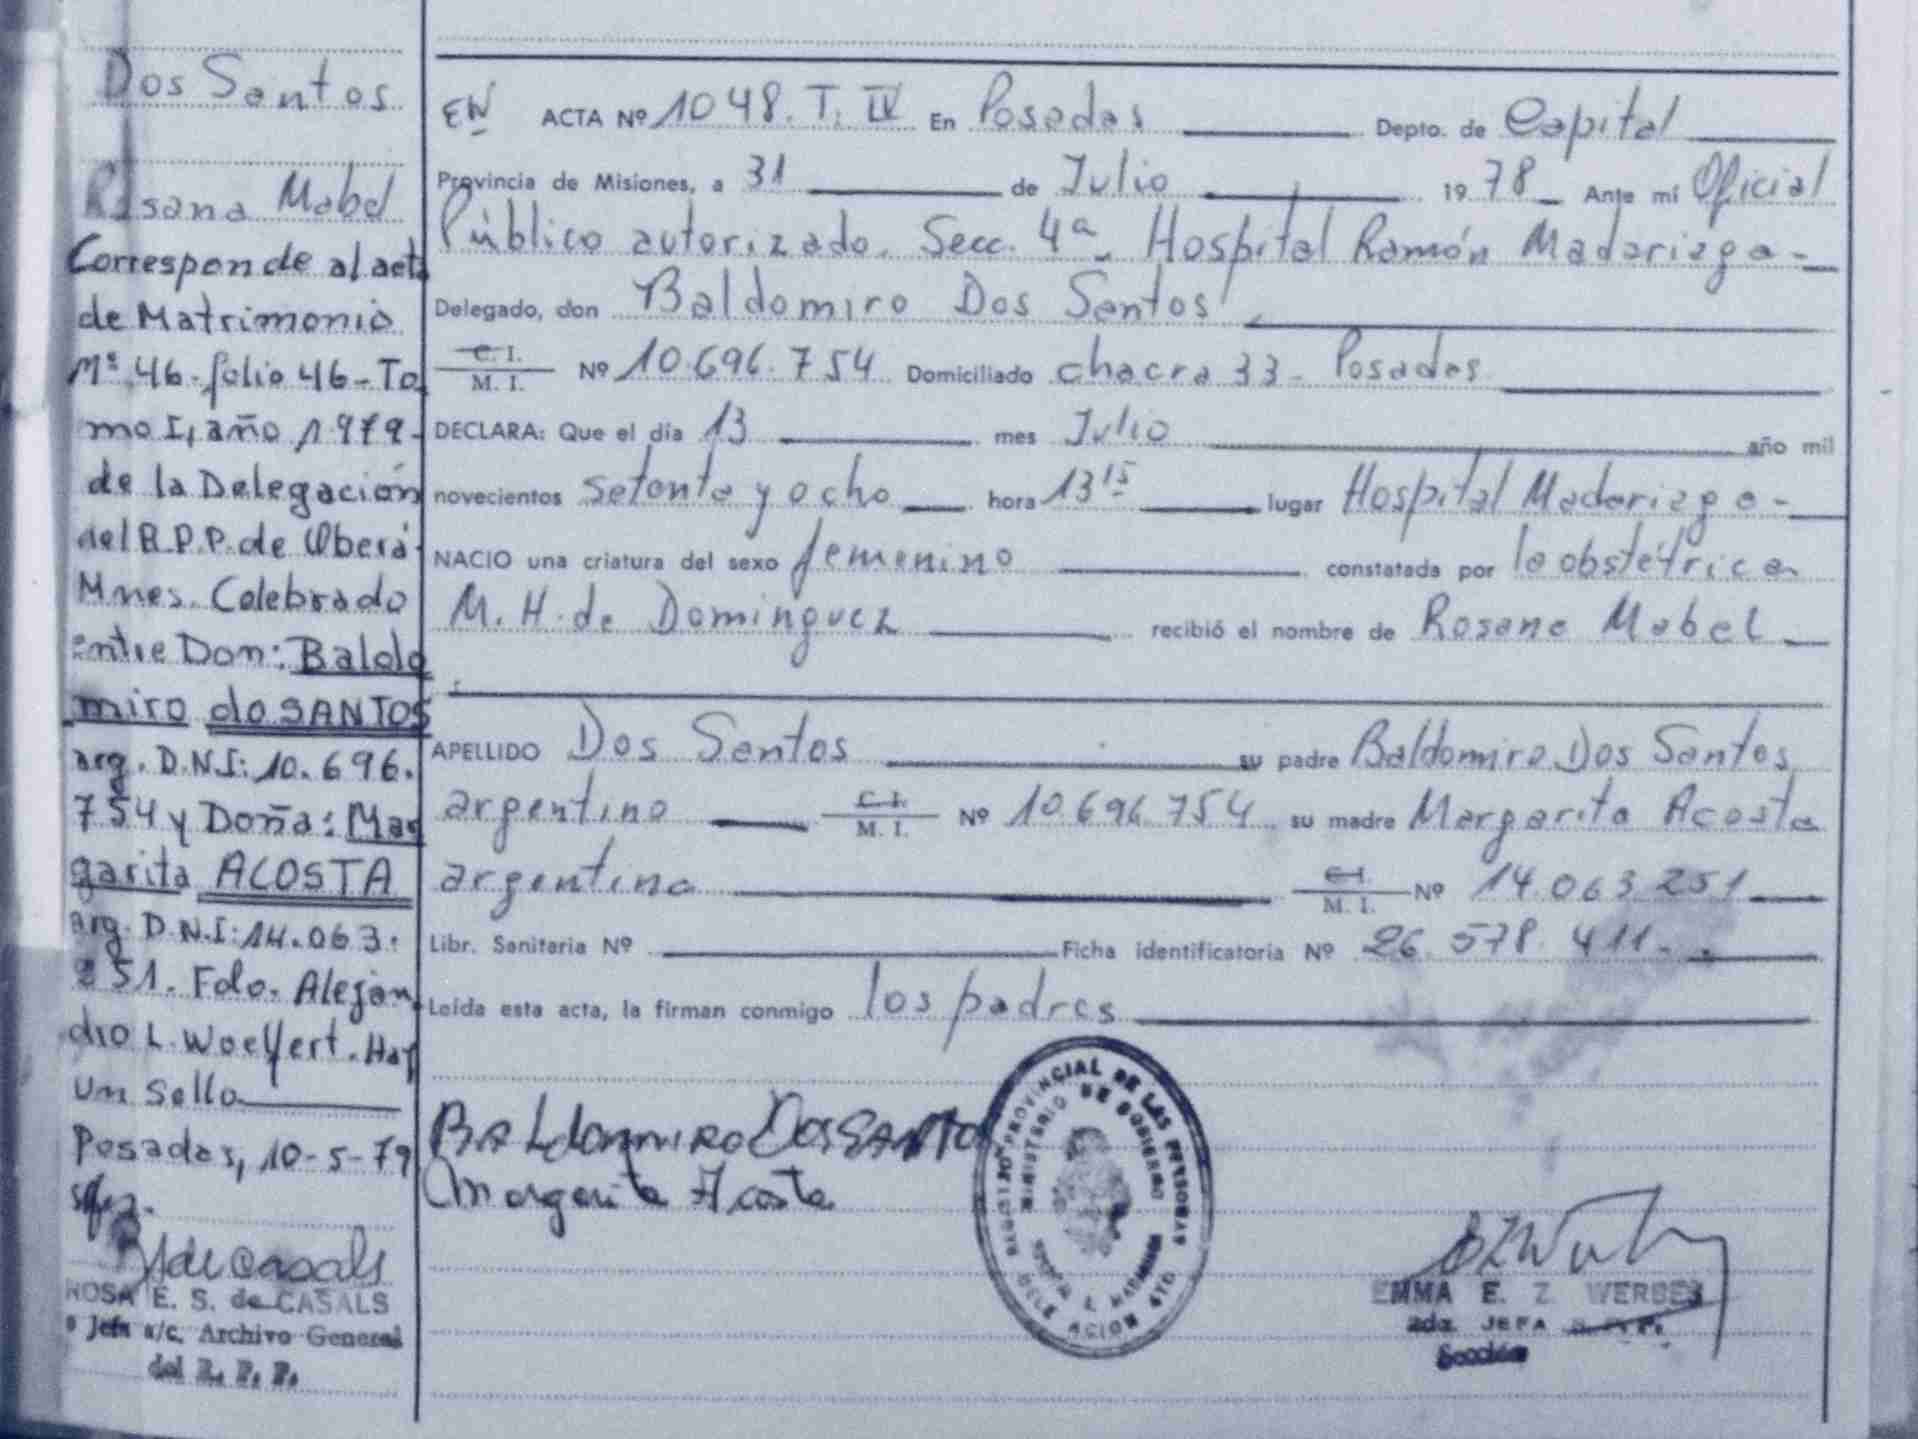 Dos Santos
Rosana Mabel
Corresponde al acta
de Matrimonio
Nº 46-folio 46-To
mo I, año 1979-
de la Delegación
del R.P.P. de Oberá-
Mnes. Celebrado
entre Don: Baldo
miro do SANTOS
arg. D.N.I: 10.696.
754 y Doña: Mar
garita ACOSTA
arg. D.N.I: 14.063.
251. Fdo. Alejan
dro L. Woelfert. Hay
un sello
Posadas, 10-5-79
de Casals
ROSA E. S. de CASALS
Jefa a/c. Archivo General
del R. P. P.
EN ACTA Nº 1048. T. IV En Posadas Depto. de Capital
Provincia de Misiones, a 31 de Julio 1978 Ante mí Oficial
Público autorizado. Secc. 4ª. Hospital Ramón Madariaga-
Delegado, don Baldomiro Dos Santos
C. I. M. I. Nº 10.696.754 Domiciliado chacra 33- Posadas
DECLARA: Que el día 13 mes Julio año mil
novecientos setenta y ocho hora 13 15 lugar Hospital Madariaga-
NACIO una criatura del sexo femenino constatada por la obstétrica
M. H. de Dominguez recibió el nombre de Rosana Mabel
APELLIDO Dos Santos su padre Baldomiro Dos Santos
argentino C. I. M. I. Nº 10.696.754 su madre Margarita Acosta
argentina C. I. M. I. Nº 14.063.251
Libr. Sanitaria Nº Ficha identificatoria Nº 26.578.411-
Leída esta acta, la firman conmigo los padres
BALdomiRO Dos SANTO
Margarita Acosta
REGISTRO PROVINCIAL DE LAS PERSONAS
MINISTERIO DE GOBIERNO
DELEGACION 4TO
EMMA E. Z. WERBES
JEFA
Sección